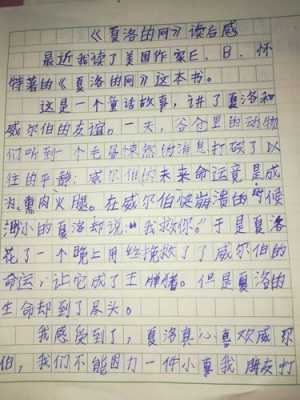 《夏洛的网》读后感
最近我读了美国作家E.B.怀
特著的《夏洛的网》这本书。
这是一个童话故事，讲了夏洛和
威尔伯的友谊。一天，谷仓里的动物
们听到一个毛骨悚然的消息打破了以
往的平静：威尔伯的未来命运竟是成
为熏肉火腿。在威尔伯快崩溃的时候
渺小的夏洛却说：“我救你。”于是夏洛
花了一个晚上用丝挽救了了威尔伯的
命运，让它成了王牌猪。但是夏洛的
生命却到了尽头。
我感受到了，夏洛真心喜欢威尔
伯，我们不能因为一件小事我朋友打